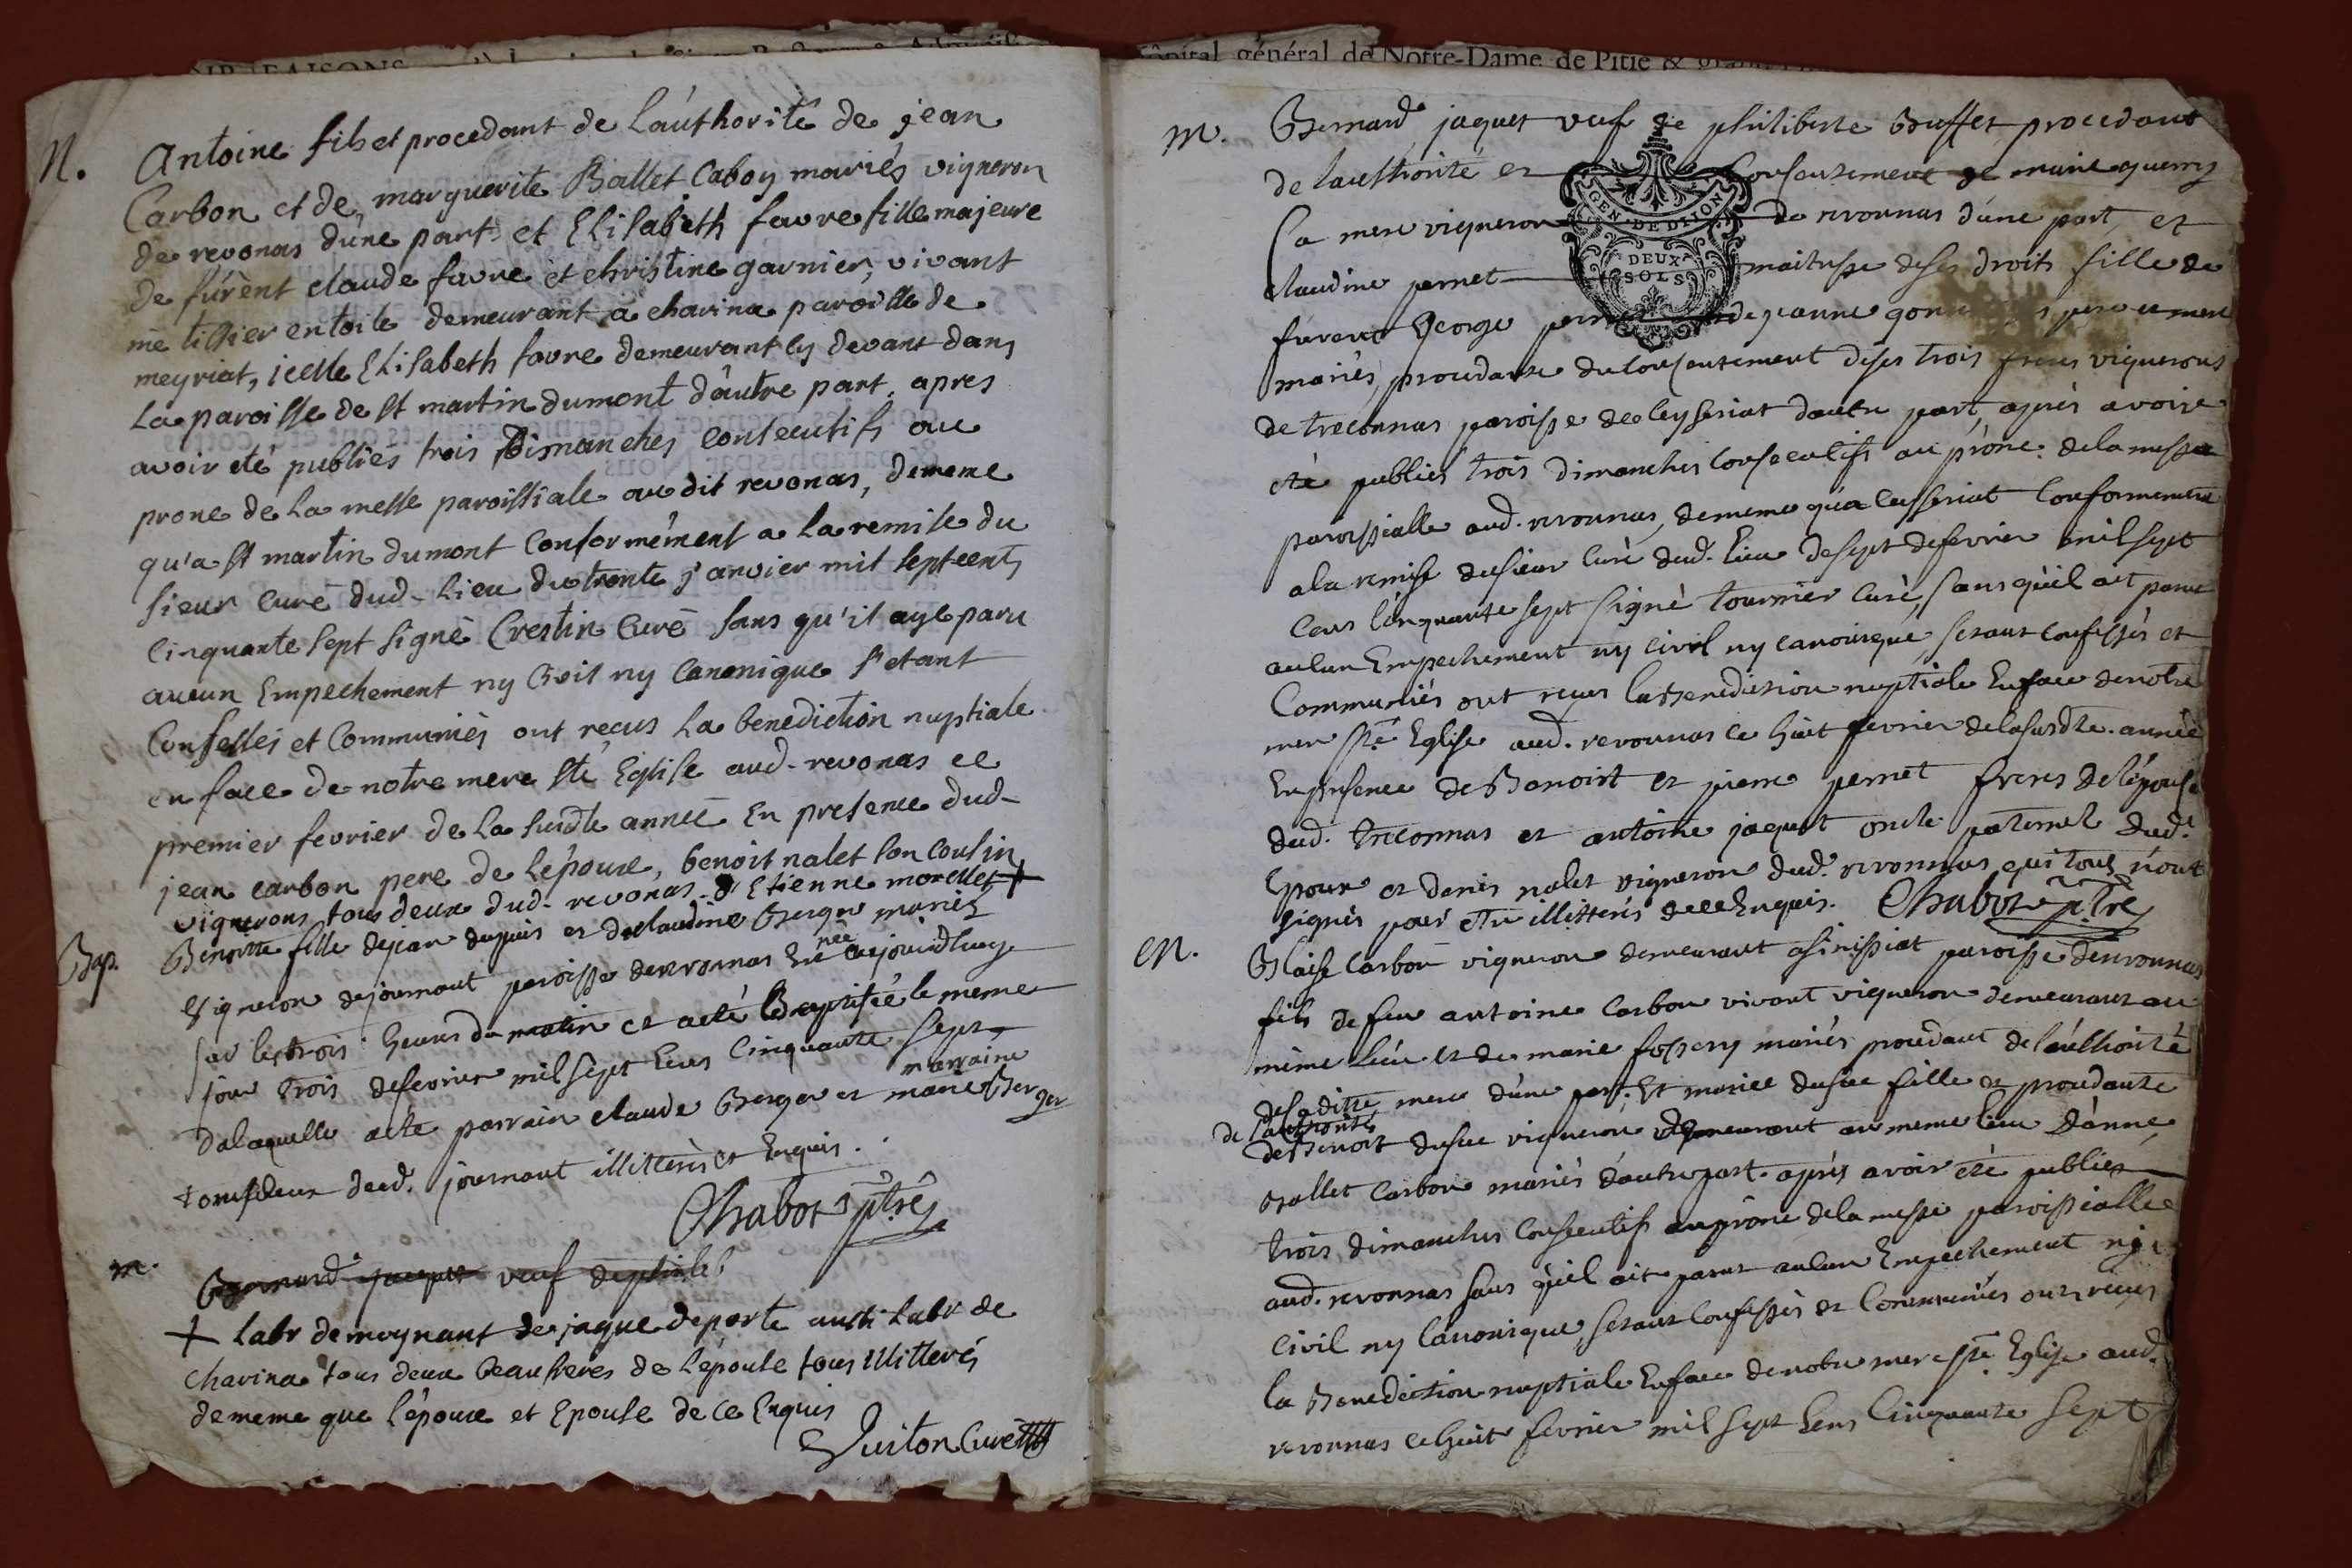 hôpital général de Notre-Dame de Pitié &
M. Antoine fils et procedant de L'authorité de jean
Carbon et de marguerite Ballet Caboy mariés vigneron
de revonas d'une part et Elisabeth favre fille majeure
de fürent claude favre et christine garnier, vivant
me tissier en toile demeurant a chavina paroisse de
meyriat, icelle Elisabeth favre demeurant cy devant dans
La paroisse de St martin dumont d'autre part, apres
avoir eté publiés trois Dimanches consecutifs au
prone de La messe paroissiale au dit revonas, demême
qu'a St martin dumont Conformément a La remise du
sieur Curé dud. Lieu du trente janvier mil sept cents
Cinquante sept signé Crestin Curé sans qu'il aye paru
aucun Empechement ny Civil ny Canonique s'etant
Confessés et Communiés ont recus La benediction nuptiale
en face de notre mere Ste Eglise aud. revonas ce
premier fevrier de La susdte année En presence dud.
jean carbon pere de L'époux, benoit nalet son cousin
vignerons tous deux dud. revonas & Etienne morellet +
Bap. Benoitte fille dejean dupuis et de claudine Berger mariés
vigneron de journant paroisse de revonnas née aujourdhuy
sur les trois heures du matin et a eté Baptisée le meme
jour trois defevrier mil sept Cens Cinquante sept
dalaquelle a eté parrain claude Berger et marraine marie Berger
tous deux dud. journant illitterés et Enquis.
Chabot ptre
m. Bernard jaquet veuf de philib
+ Labr demoynant de jaque deporte aussi Labr de
chavina tous deux beaufreres de L'épouse tous illitterés
demême que L'époux et Epouse de ce Enquis
Vuiton Curé
m. Bernard jaquet veuf de philiberte Buffet procedant
de lauthorité et Consentement de marie guerry
GEN. DE DIJON
Sa mere vigneron de revonnas d'une part, et
DEUX SOLS
claudine pernet maitresse deses droits fille de
furent George pernet de jeanne pere et mere
mariés, procedante du Consentement deses trois freres vignerons
de treconnas paroisse de Ceyseriat dautre part, après avoire
eté publiés trois dimanches Consecutifs au prône dela messe
paroissialle aud. revonnas, dememe qu'a Ceyseriat Conformement
ala remise dusieur Curé dud. Lieu desept defevrier mil sept
Cens Cinquante sept signé tournier Curé, sans qu'il ait parue
aucun Empechement ny civil ny canonique, setant confessés et
Communiés ont reçus la Benediction nuptiale Enface denotre
mere ste Eglise aud. revonnas ce huit fevrier delasusdte année
En presence de Benoist et pierre pernet freres de lépouse
dud. treconnas et antoine jaquet oncle paternel dud.
Epoux et denis nalet vigneron dud. revonnas qui tous nont
signés pour etre illitterés dece Enquis. Chabot ptre
M. Blaise Carbon vigneron demeurant asinissiat paroisse derevonnas
fils de feu antoine Carbon vivant vigneron demeurant au
même lieu et de marie mariés procedant de lauthorité
desaditte mere d'une part, Et marie dusuc fille et procedante
de lauthorité de Benoit dusuc vigneron demeurant au meme lieu d'anne
Ballet Carbon mariés d'autre part. après avoir eté publiés
trois dimanches Consecutifs auprône dela messe paroissialle
aud. revonnas sans qu'il ait parut aucun Empechement ny
civil ny Canonique, setant confessés et Communiés ont reçus
la Benediction nuptiale Enface denotre mere ste Eglise aud.
revonnas ce huit fevrier mil sept Cens Cinquante sept